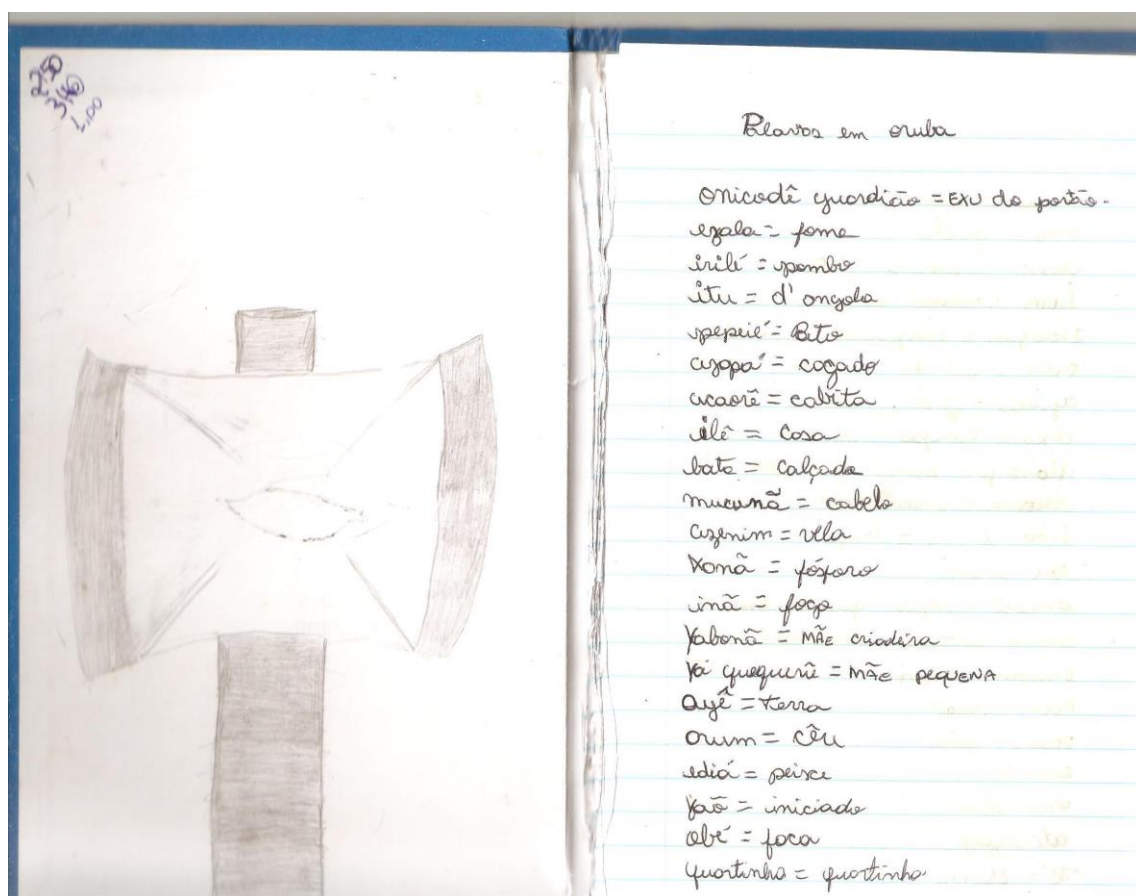 2,50
3,40
1,00
em oruba
onicodê guardião = EXU do portão.
ezala = fome
irilé = pombo
itu = d'angola
pepeié = Bito
azopá = cagado
acaorê = cabrita
ilê = Casa
bata = calçado
mucunã = cabelo
azenim = vela
Xonã = fósforo
inã = fogo
Yabonã = MÃE criadeira
Yá quequerê = MÃE PEQUENA
Ayê = terra
orum = cêu
ediá = peixe
Yaô = iniciado
obé = faca
quartinha = quartinha